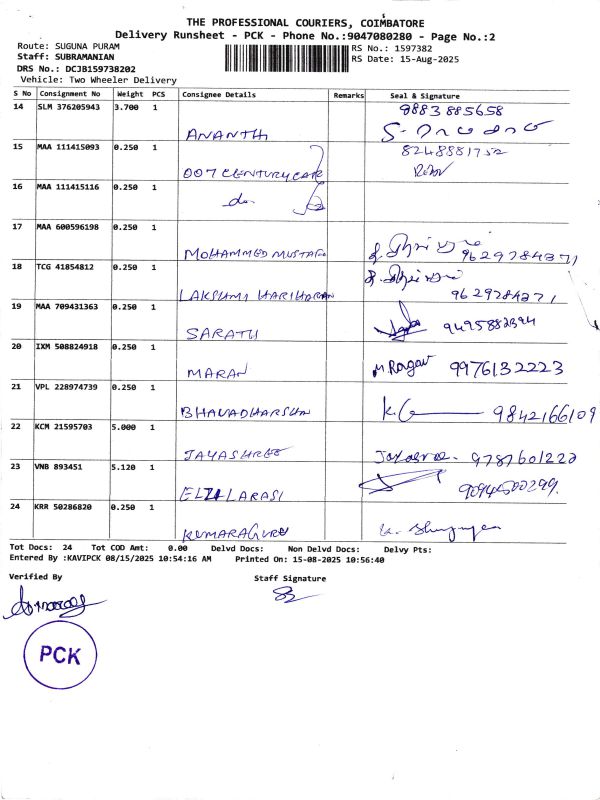 THE PROFESSIONAL COURIERS, COIMBATORE
Delivery Runsheet - PCK - Phone No.:9047080280 - Page No.:2
Route: SUGUNA PURAM RS No.: 1597382
Staff: SUBRAMANIAN RS Date: 15-Aug-2025
DRS No.: DCJB159738202
Vehicle: Two Wheeler Delivery
S No Consignment No Weight PCS Consignee Details Remarks Seal & Signature
14 SLM 376205943 3.700 1 9883885658
ANANTH
15 MAA 111415093 0.250 1 8248881752
007 CENTURY CAR
16 MAA 111415116 0.250 1
do
17 MAA 600596198 0.250 1
MOHAMMED MUSTAFA 9629784371
18 TCG 41854812 0.250 1
LAKSHMI HARIHARAN 9629784371
19 MAA 709431363 0.250 1
SARATH 9495882394
20 IXM 508824918 0.250 1
MARAN M. Rangar 9976132223
21 VPL 228974739 0.250 1
BHAVADHARSHN 9842166109
22 KCM 21595703 5.000 1
JAYASHREE Jayashree. 9787601222
23 VNB 893451 5.120 1
ELZILARASI 9094500299.
24 KRR 50286820 0.250 1
KUMARAGURU
Tot Docs: 24 Tot COD Amt: 0.00 Delvd Docs: Non Delvd Docs: Delvy Pts:
Entered By :KAVIPCK 08/15/2025 10:54:16 AM Printed On: 15-08-2025 10:56:40
Verified By Staff Signature
PCK